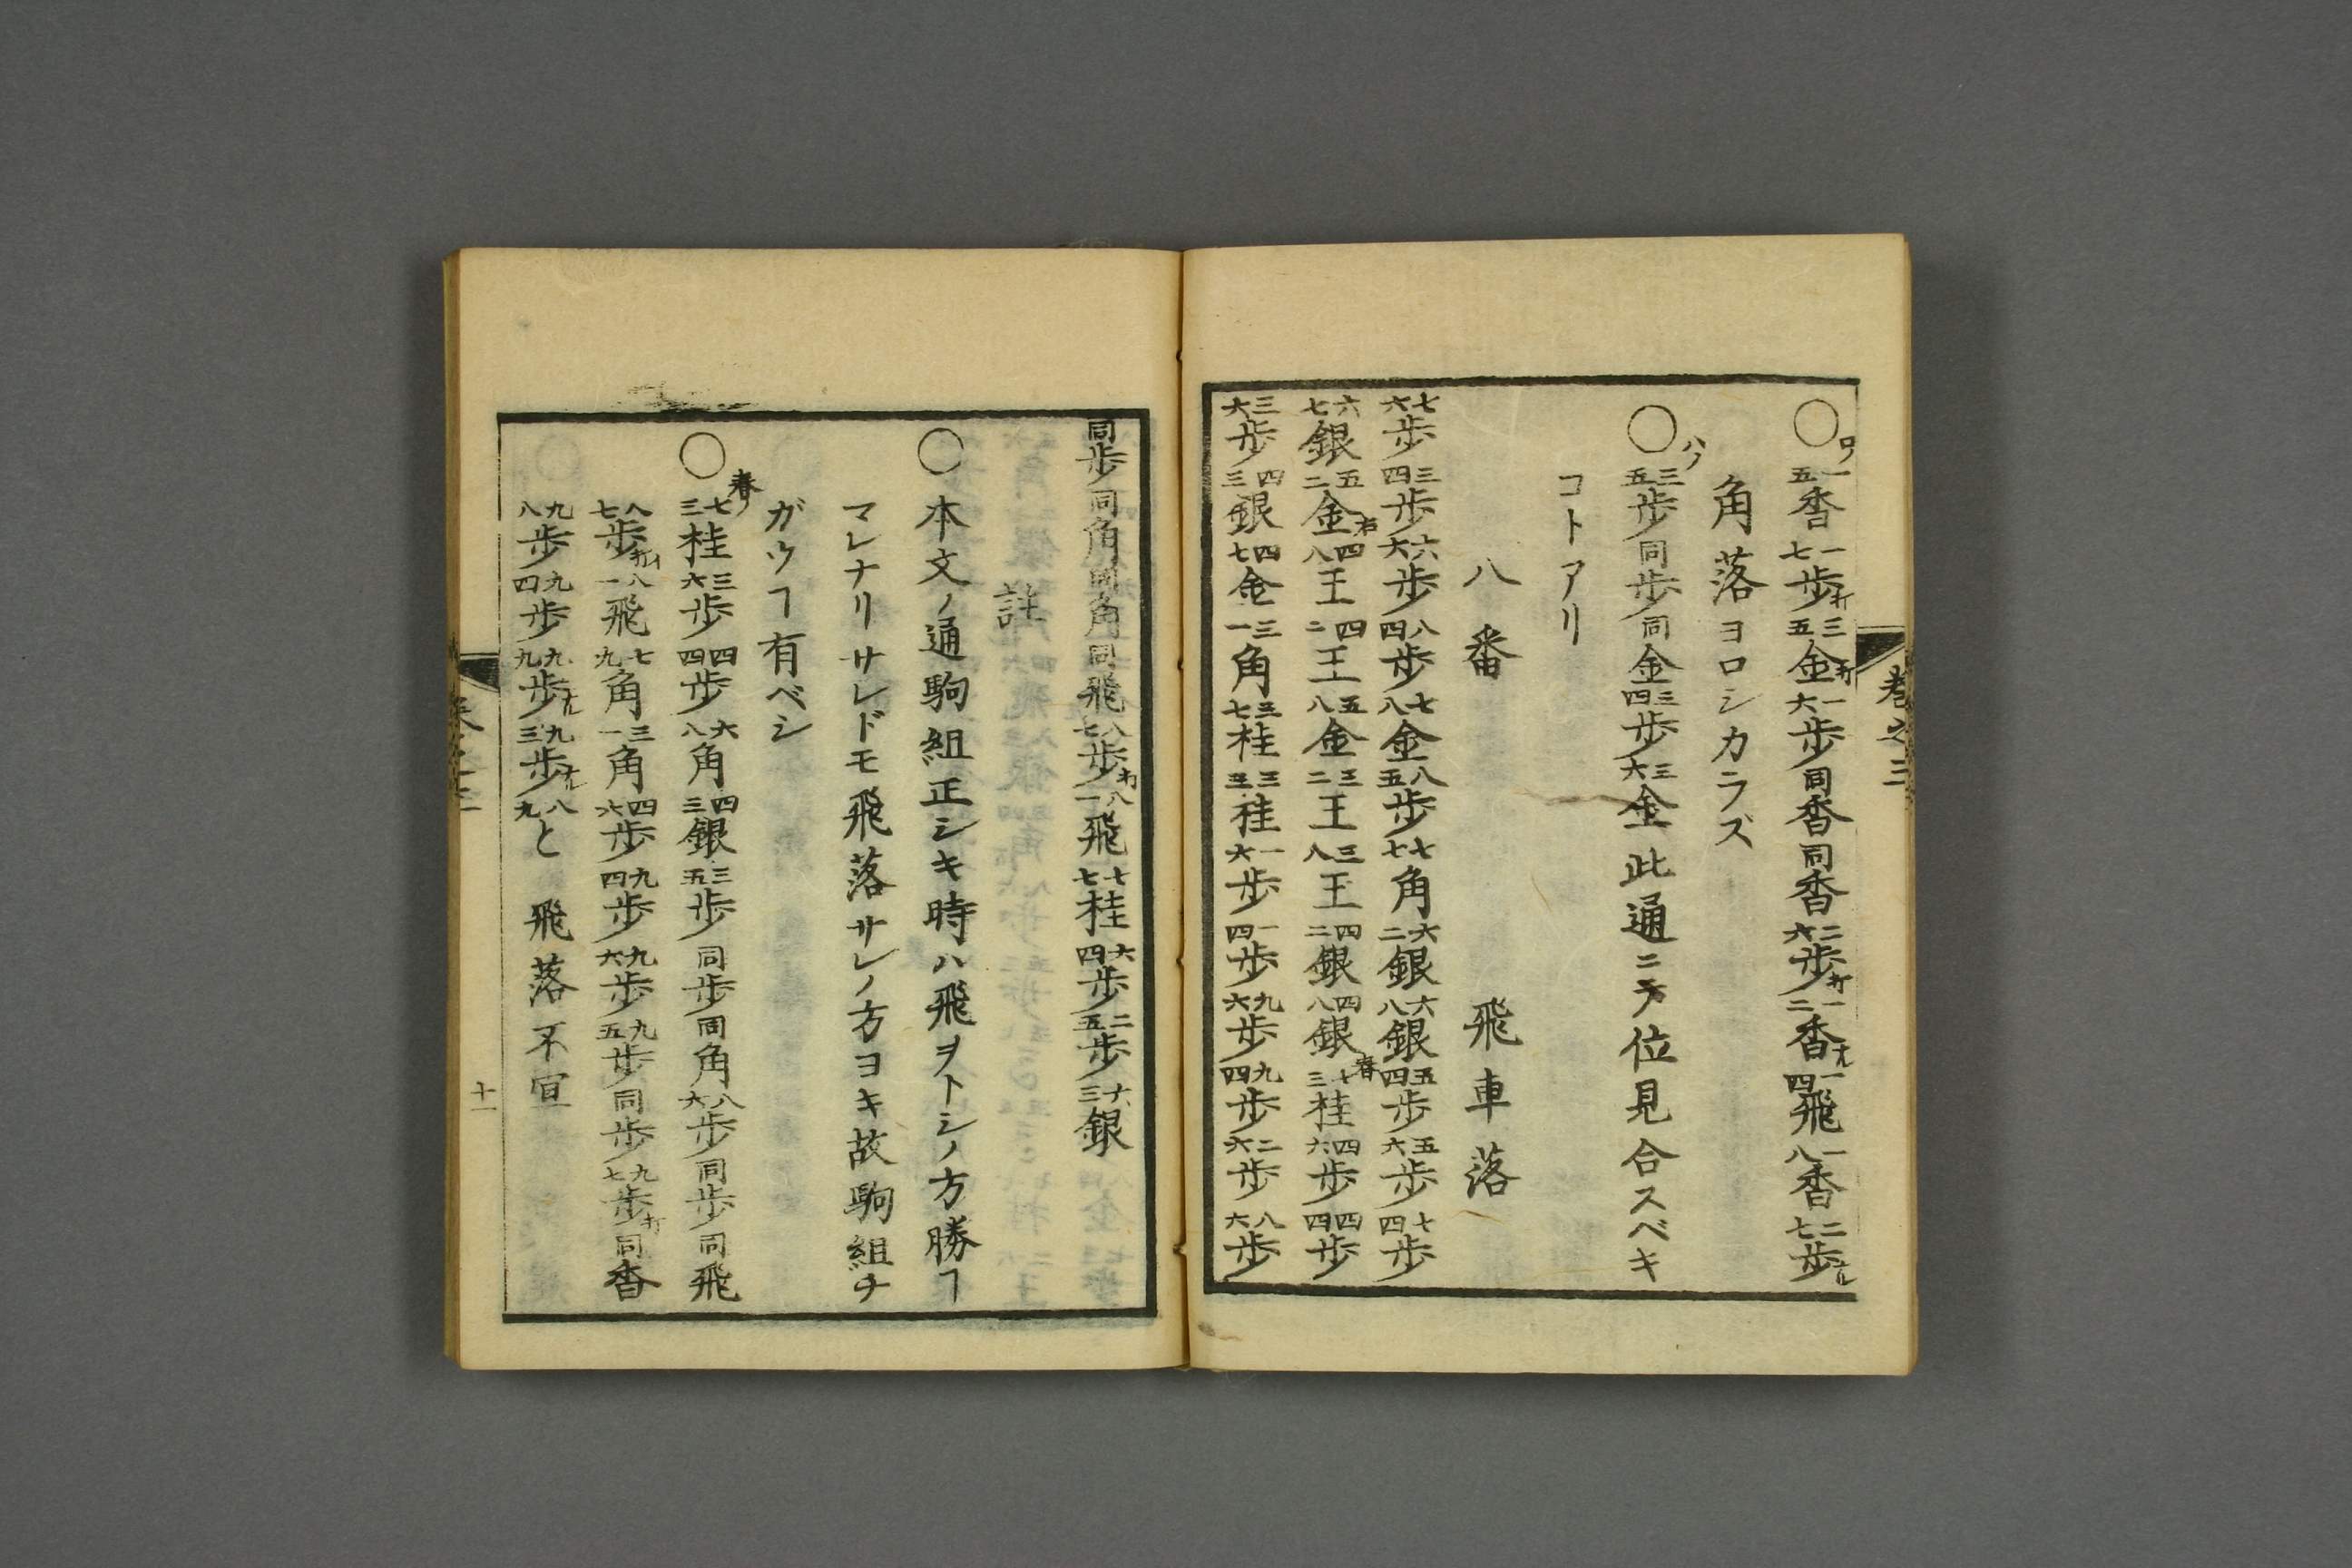 ○ロノ 一五香 一七歩打 三五金打 一六歩 同香 同香 二六歩打 一二香ナル 一四飛 一八香 二七歩ナル
角落ヨロシカラズ
○ハノ 三五歩 同歩 同金 三四歩 三六金 此通ニテ位見合スベキ
コトアリ
八番 飛車落
七六歩 三四歩 六六歩 八四歩 七八金 八五歩 七七角 六二銀 六八銀 五四歩 五六歩 七四歩
六七銀 五二金右 四八王 四二王 五八金 三二王 三八王 四二銀 四八銀 七三桂春 四六歩 四四歩
三六歩 四三銀 四七金 三一角 三七桂 三三桂 一六歩 一四歩 九六歩 九四歩 二六歩 八六歩
巻之三
同歩 同角 同角 同飛 八七歩打 八一飛 七七桂 六四歩 二五歩 六三銀
註
○本文ノ通駒組正シキ時ハ飛ヲトシノ方勝ヿ
マレナリサレドモ飛落サレノ方ヨキ故駒組チ
ガウヿ有ベシ
○春ノ 七三桂 三六歩 四四歩 六八角 四三銀 三五歩 同歩 同角 八六歩 同歩 同飛
八七歩打 八一飛 七九角 三一角 四六歩 九四歩 九六歩 九五歩 同歩 九七歩打 同香
九八歩 九四歩 九九歩ナル 九三歩ナル 八九と 飛落不宜
十一